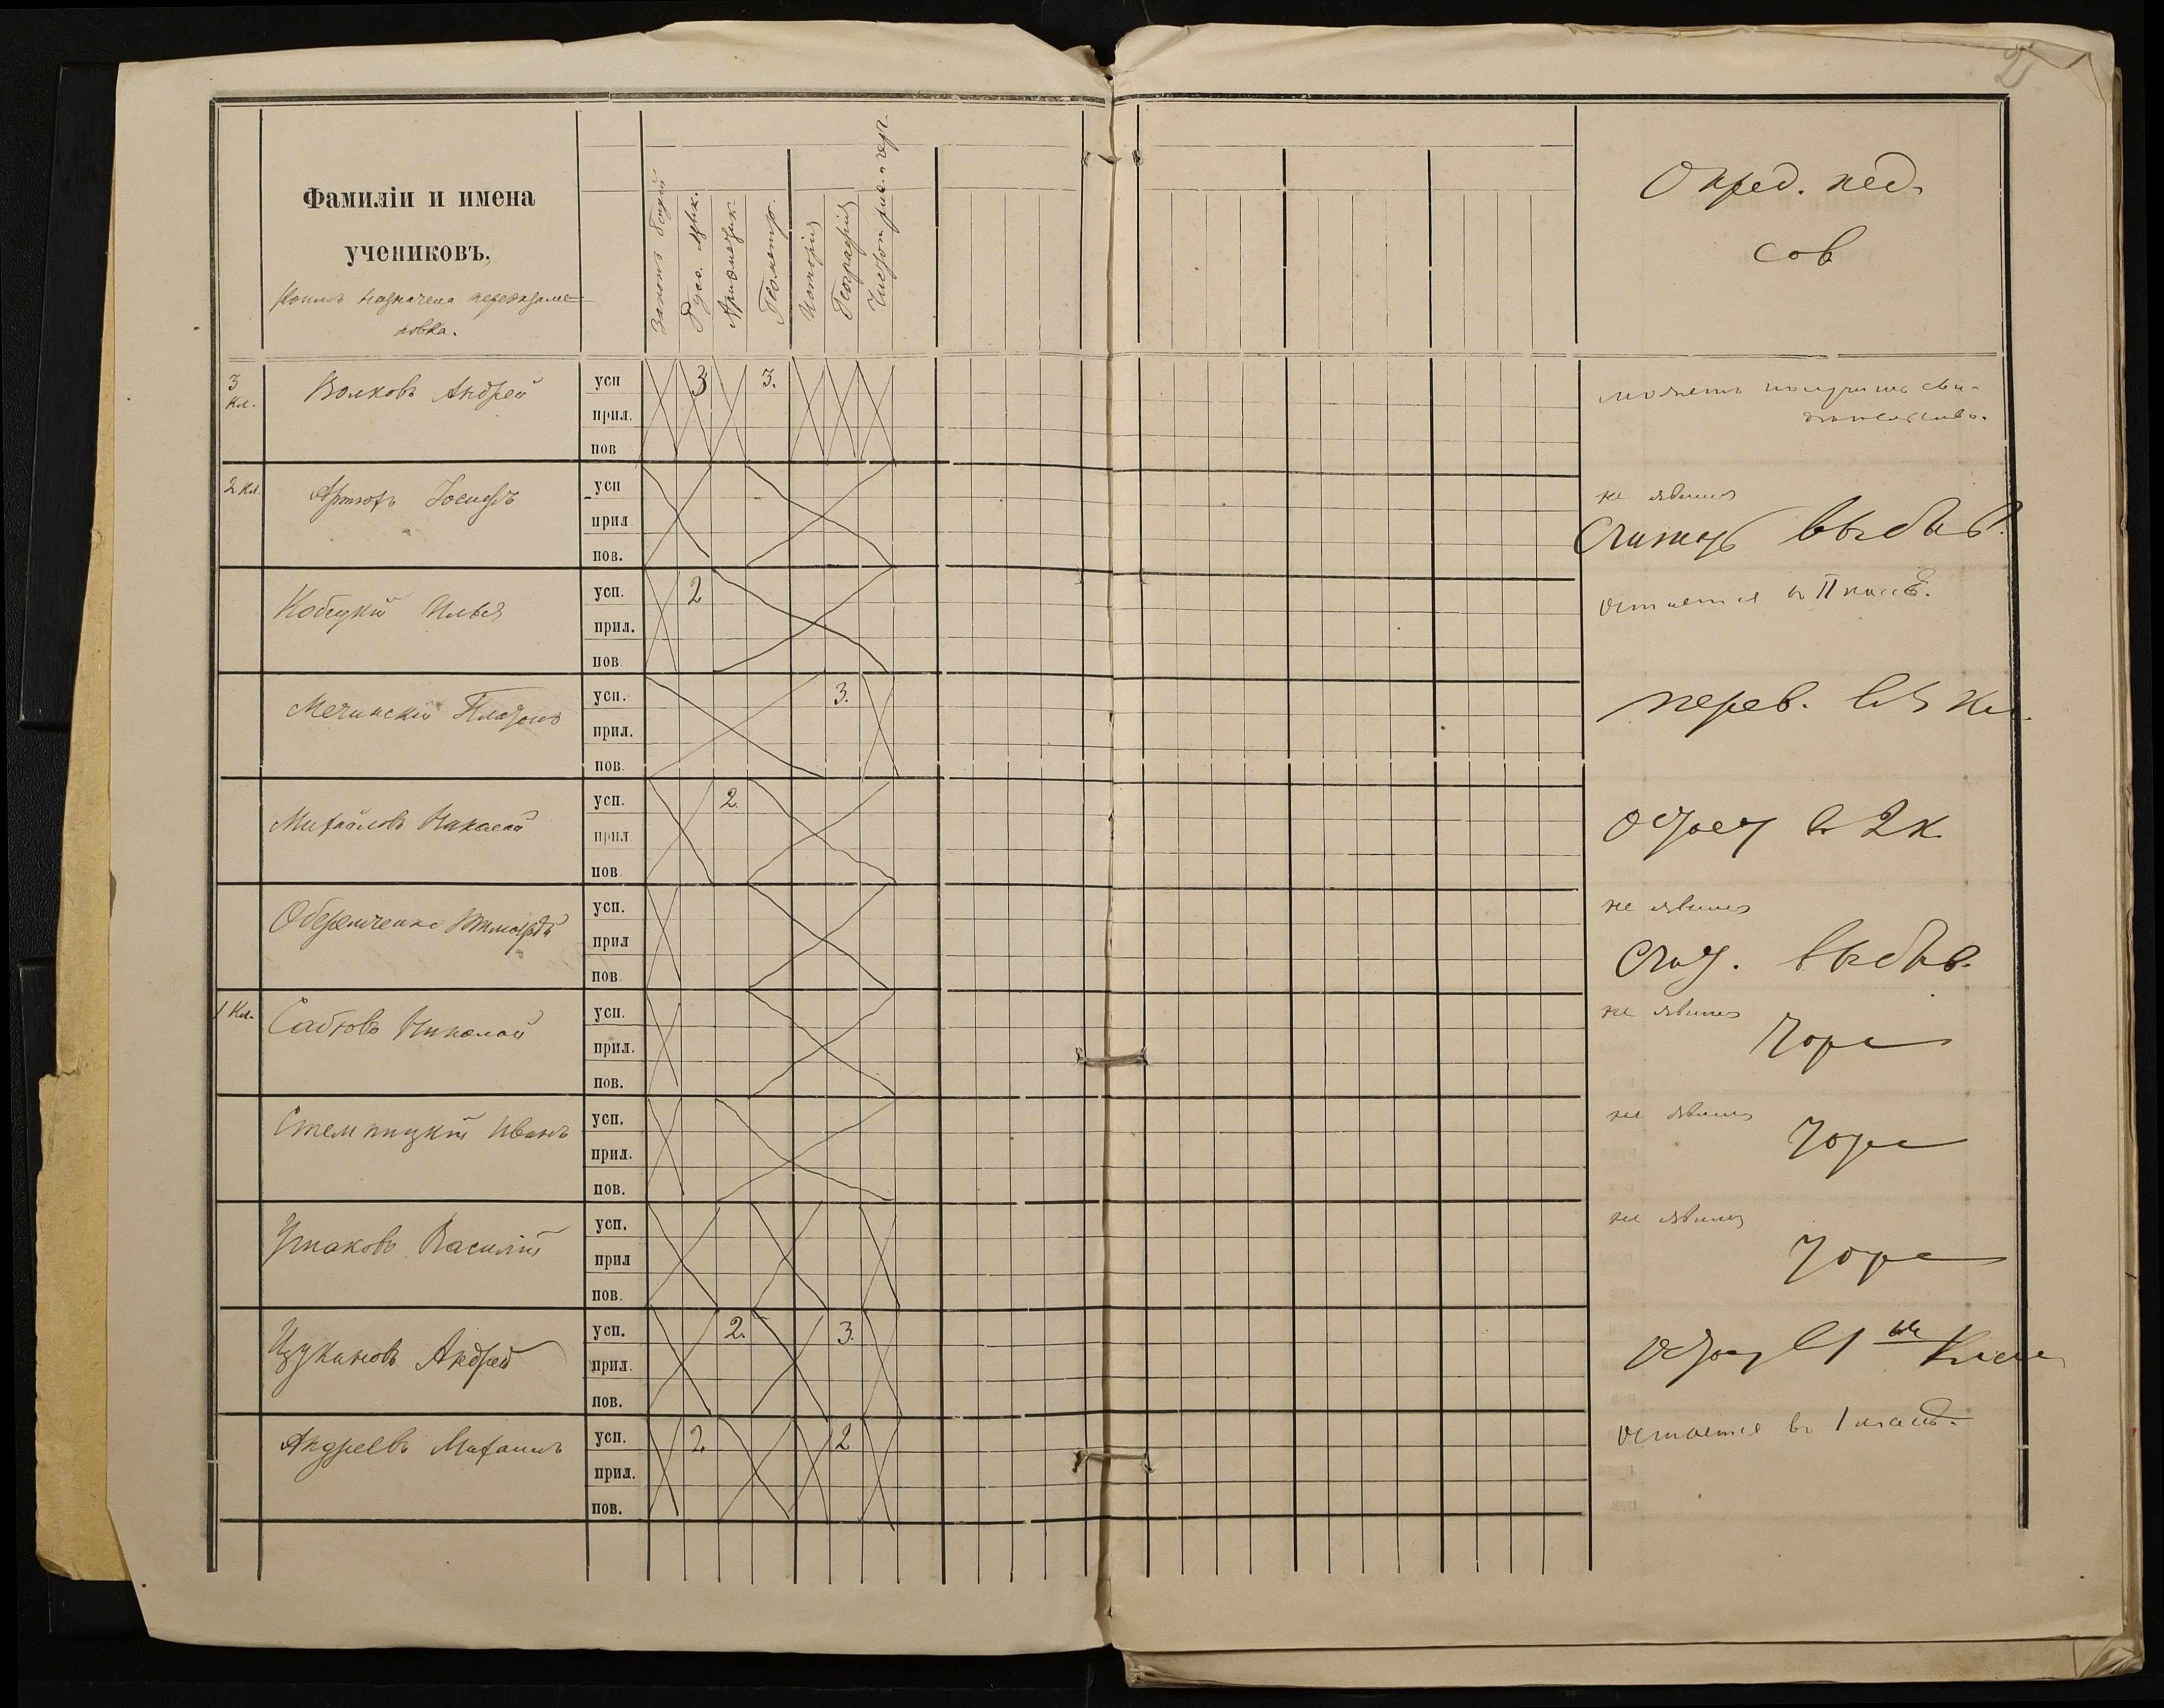 2
Фамиліи и имена
учениковъ.
Коимъ назначена переэкзаме-
новка.
Законъ божій
Русс. язык.
Арифметик.
Геометр.
Исторія
Географія
Опред. пед.
сов
3
кл.
Волковъ Андрей
усп
3
3.
можетъ получить сви-
дѣтельство.
прил.
пов
2 кл.
Іосифъ
усп
не явился
прил
Считать выбыв.
пов.
Кобецкій Илья
усп.
2
остается въ II классѣ.
прил.
пов
Мечинскій Платонъ
усп.
3.
перев. въ 3 кл.
прил.
пов.
Михайловъ Николай
усп.
2.
остает въ 2 к.
прил
пов
Оберемченко Тимофей
усп.
не явился
прил
Счит. выбыв.
пов
1 Кл.
Николай
усп.
не явился
тоже
прил.
пов.
Стемпицкій Иванъ
усп.
не явился
тоже
прил.
пов.
Ушаковъ Василій
усп.
не явился
тоже
прил
пов.
Цукановъ Андрей
усп.
2.
3.
остает въ 1 классѣ
прил.
пов.
Андреевъ Михаилъ
усп.
2
2
остается въ 1 классѣ.
прил.
пов.